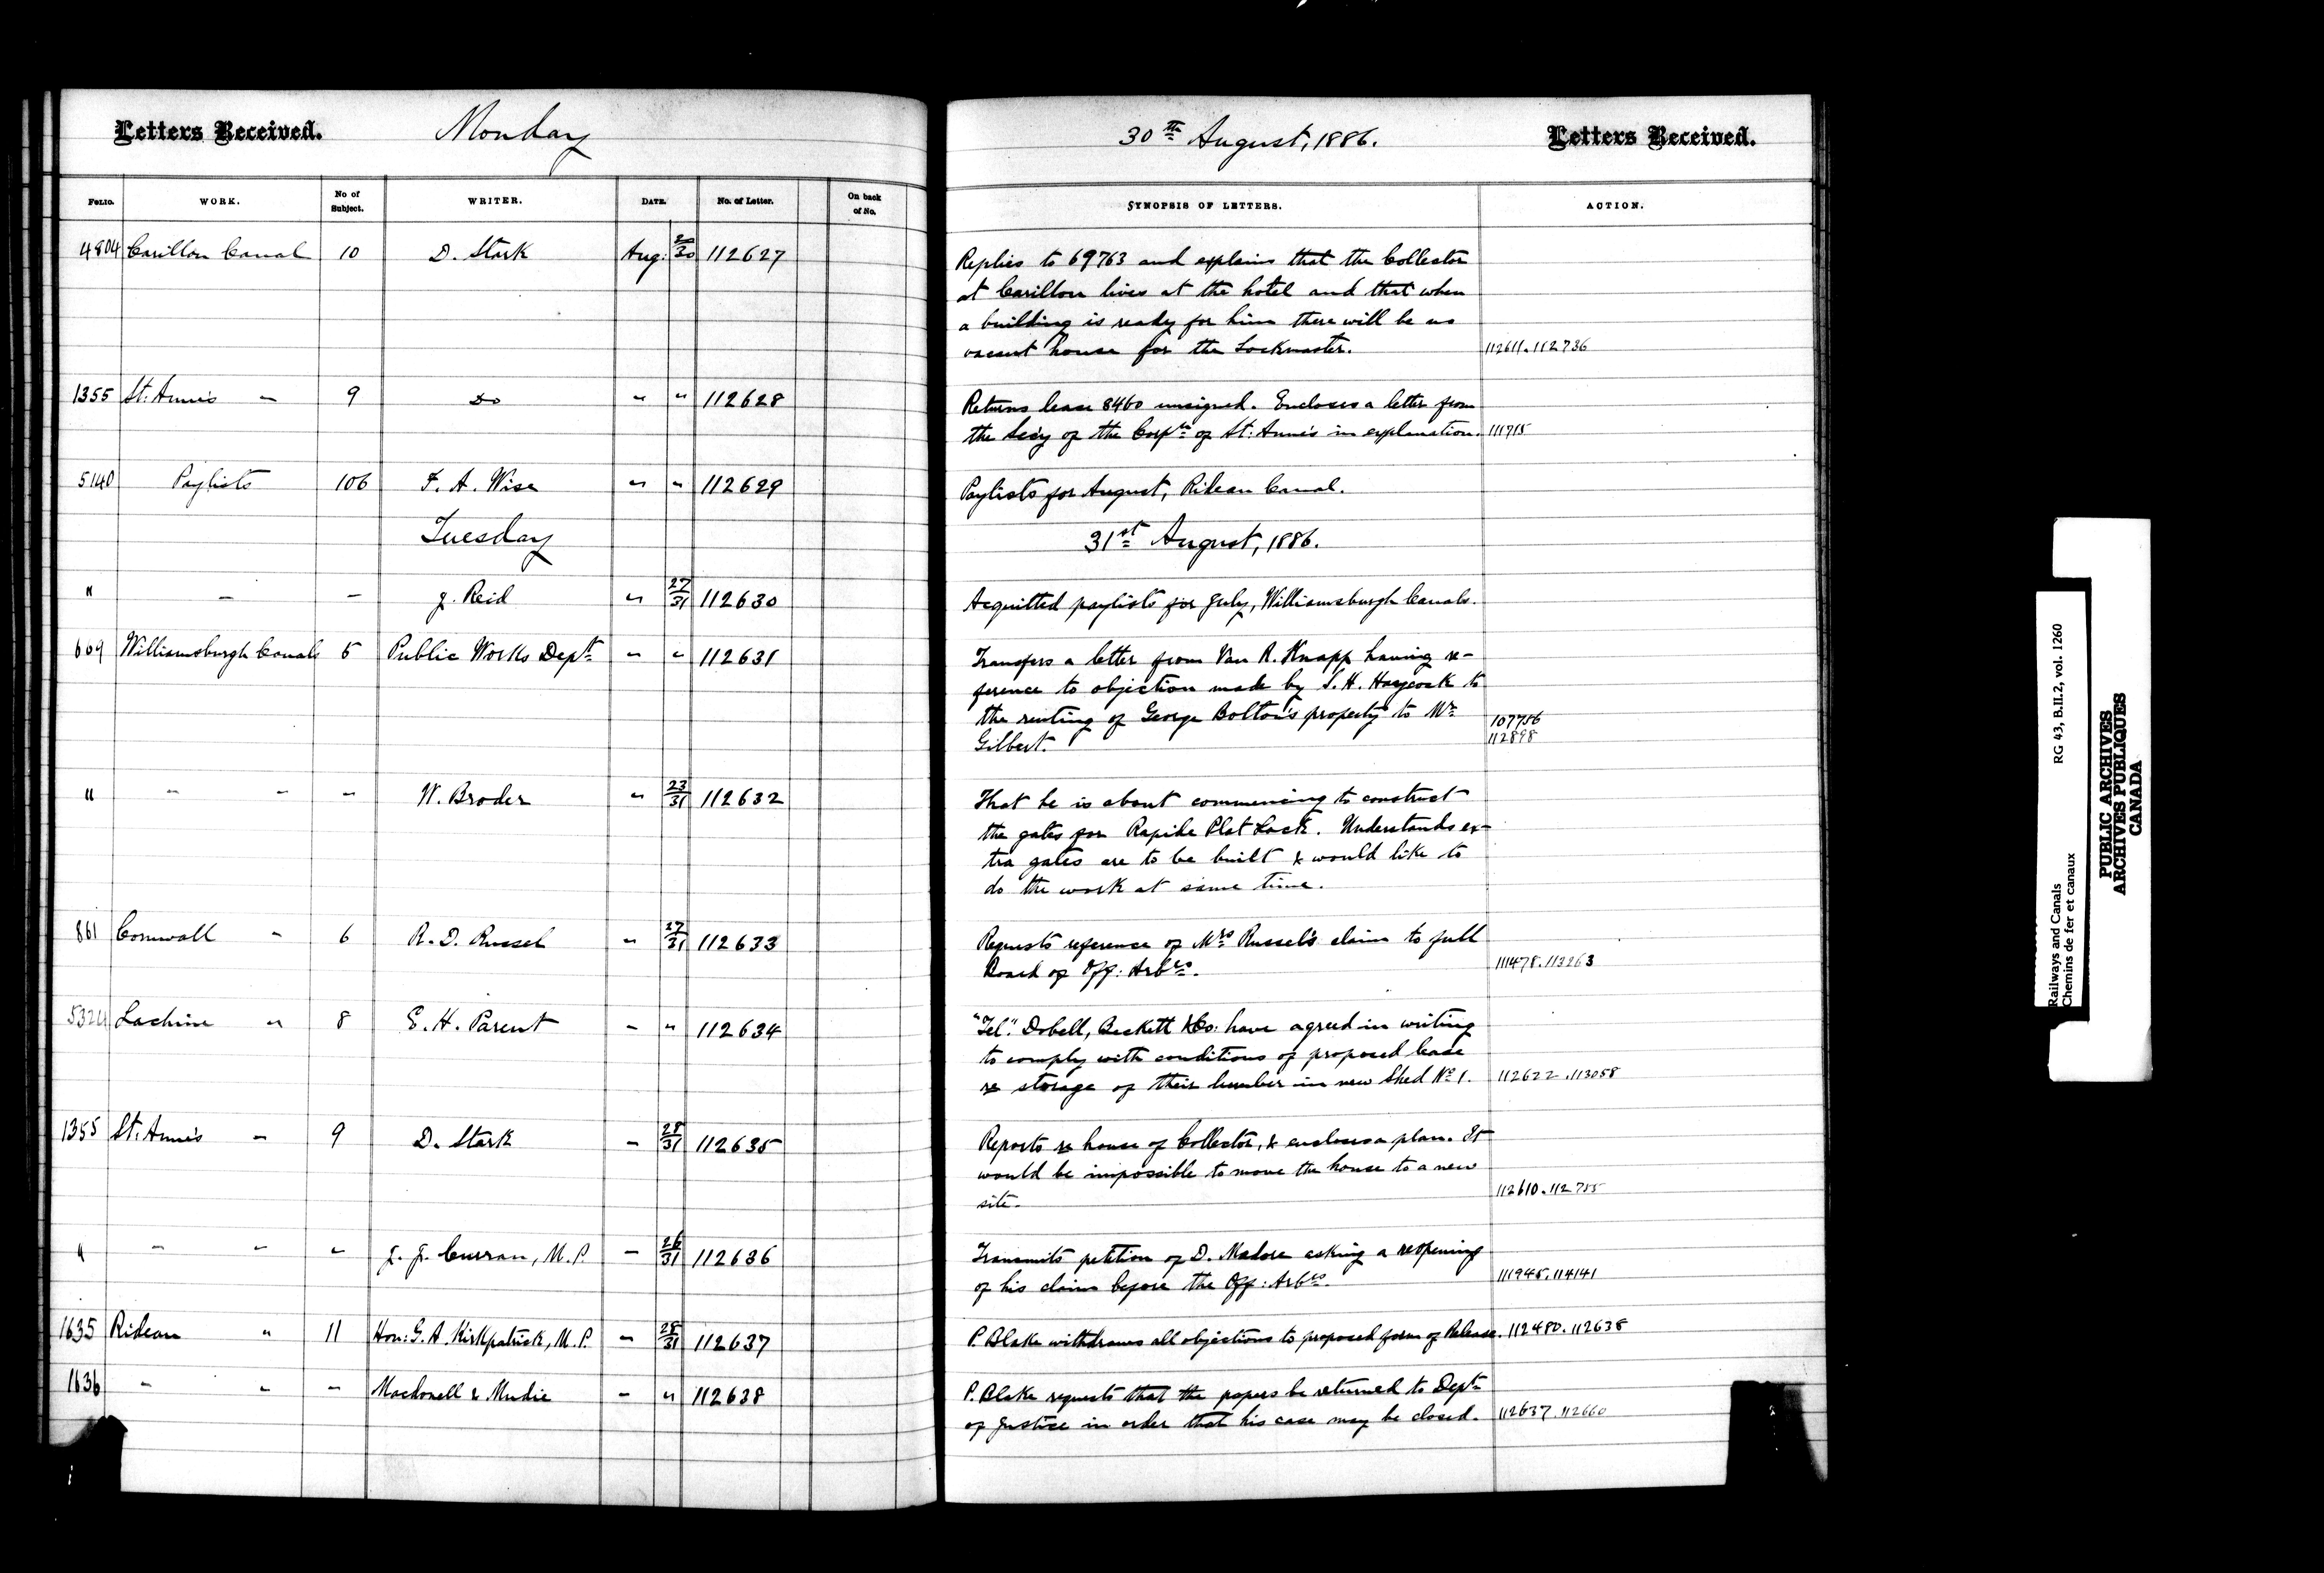 Letters Received. Monday
30th August, 1886. Letters Received.
FOLIO. WORK. No of Subject. WRITER. DATE. No. of Letter. On back of No.
SYNOPSIS OF LETTERS. ACTION.
4804 Carillon Canal 10 D. Stark Aug: 30 112627
Replies to 69763 and explains that the Collector
at Carillon lives at the hotel and that when
a building is ready for him there will be no
vacant house for the Lockmaster. 112611. 112736
1355 St. Anne's " 9 Do " " 112628
Returns lease 8460 unsigned. Encloses a letter from
the Sec'y of the Corp'n of St. Anne's in explanation. 111715
5140 Paylists 106 F. A. Wise " " 112629
Paylists for August, Rideau Canal.
Tuesday
31st August, 1886.
" " " J. Reid " 27/31 112630
Acquitted paylists for July, Williamsburgh Canals.
609 Williamsburgh Canals 5 Public Works Dept " " 112631
Transfers a letter from Van R. Knapp having re-
ference to objection made by S. H. Haycock to
the renting of George Bolton's property to Mr. 107756
Gilbert. 112898
" " " " W. Broder " 23/31 112632
That he is about commencing to construct
the gates for Rapide Plat Lock. Understands ex-
tra gates are to be built & would like to
do the work at same time.
861 Cornwall " 6 R. D. Russel " 27/31 112633
Requests reference of Mrs Russel's claim to full
Board of Off: Arbrs. 111478. 113263
5324 Lachine " 8 E. H. Parent " " 112634
"Tel." Dobell, Beckett & Co: have agreed in writing
to comply with conditions of proposed lease
re storage of their lumber in new Shed No 1. 112622. 113058
1355 St. Anne's " 9 D. Stark " 28/31 112635
Reports re house of Collector, & encloses a plan. It
would be impossible to move the house to a new
site. 112610. 112755
" " " " J. J. Curran, M.P. " 26/31 112636
Transmits petition of D. Madore asking a reopening
of his claim before the Off: Arbrs. 111945. 114141
1635 Rideau " 11 Hon: G. A. Kirkpatrick, M.P. " 28/31 112637
P. Blake withdraws all objections to proposed form of Release. 112480. 112638
1636 " " " Macdonell & Mudie " " 112638
P. Blake requests that the papers be returned to Dept
of Justice in order that his case may be closed. 112637. 112660
Railways and Canals RG 43, B.II.2, vol. 1260
Chemins de fer et canaux
PUBLIC ARCHIVES
ARCHIVES PUBLIQUES
CANADA